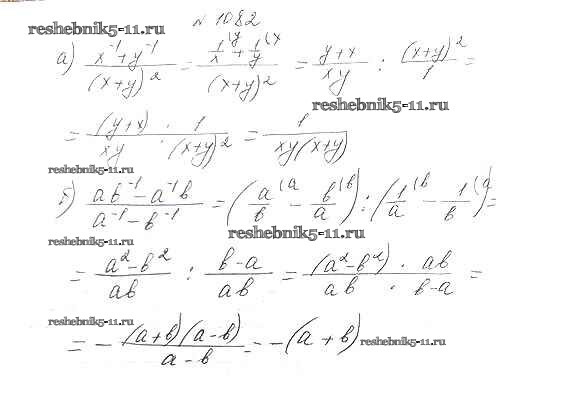 № 1082
reshebnik5-11.ru
а) (x⁻¹ + y⁻¹)/(x+y)² = (1/x⁽ʸ + 1/y⁽ˣ)/(x+y)² = (y+x)/(xy) : (x+y)²/1 =
reshebnik5-11.ru
= (y+x)/(xy) · 1/(x+y)² = 1/(xy(x+y))
reshebnik5-11.ru
б) (ab⁻¹ − a⁻¹b)/(a⁻¹ − b⁻¹) = (a/b⁽ᵃ − b/a⁽ᵇ) : (1/a⁽ᵇ − 1/b⁽ᵃ) =
reshebnik5-11.ru
reshebnik5-11.ru
= (a² − b²)/(ab) : (b − a)/(ab) = ((a² − b²) · ab)/(ab · (b − a)) =
reshebnik5-11.ru
= − ((a+b)(a−b))/(a−b) = −(a + b)
reshebnik5-11.ru